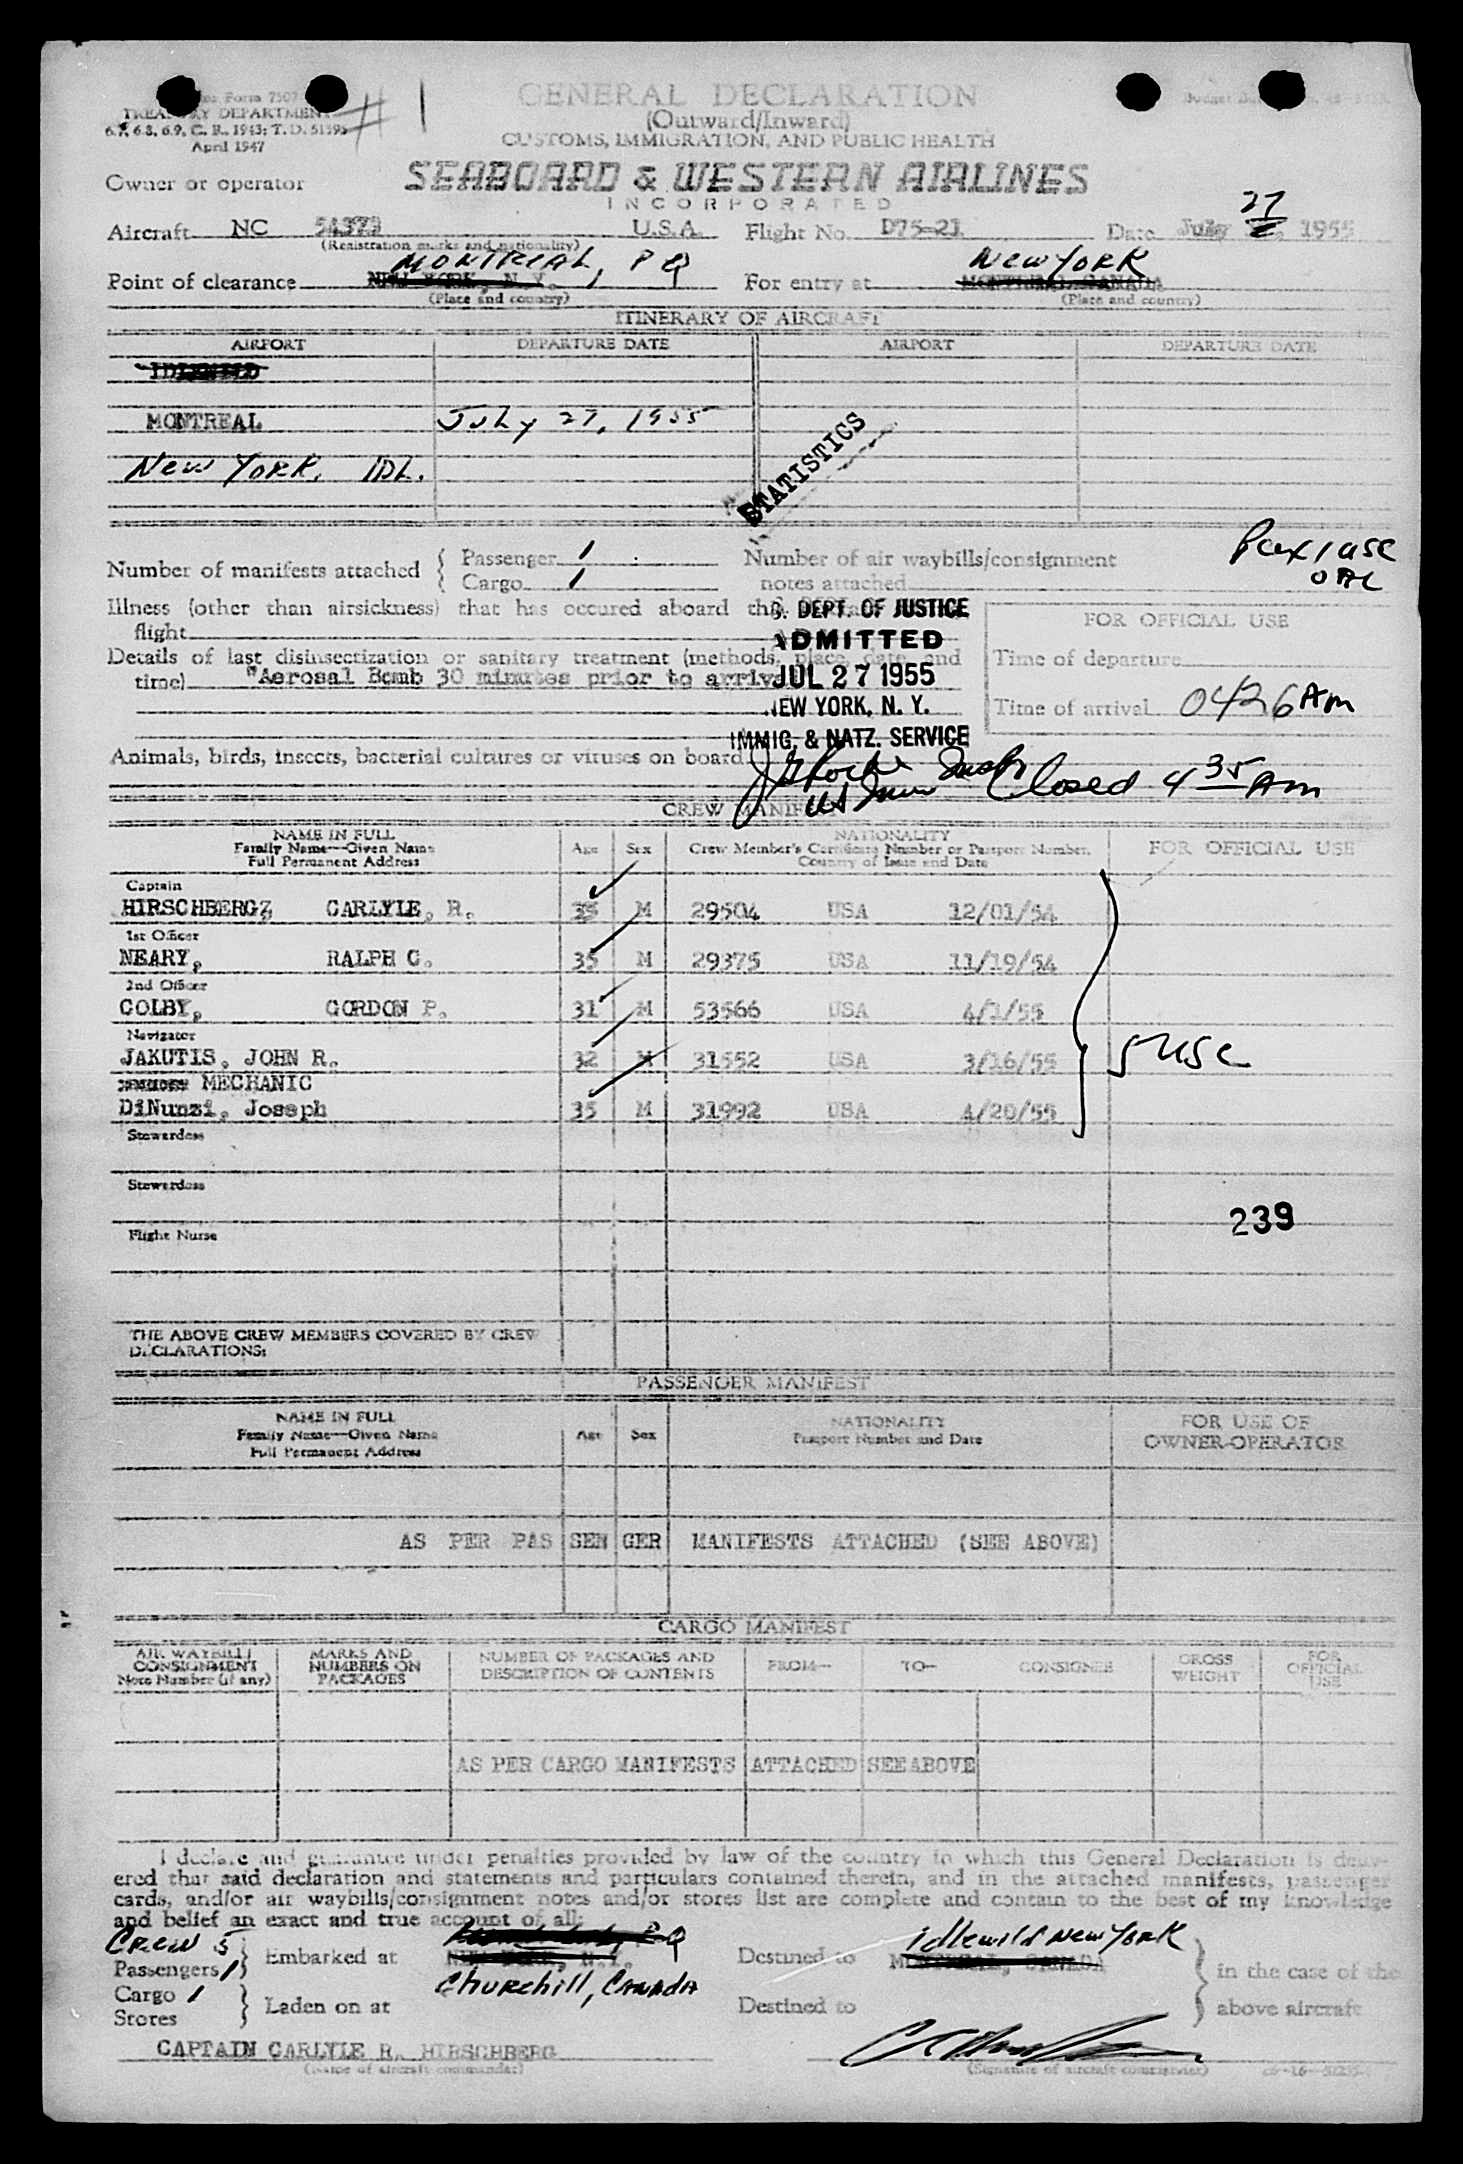 Form 7507
TREASURY DEPARTMENT
6.7, 6.8, 6.9, C. R. 1943; T. D. 51595
April 1947
# 1
GENERAL DECLARATION
(Outward/Inward)
CUSTOMS, IMMIGRATION, AND PUBLIC HEALTH
Owner or operator SEABOARD & WESTERN AIRLINES
INCORPORATED
Aircraft NC 54373 U.S.A. Flight No. D75-21 Date July 27 1955
(Registration marks and nationality)
MONTREAL, P Q New York
Point of clearance NEW YORK, N. Y. For entry at MONTREAL CANADA
(Place and country) (Place and country)
ITINERARY OF AIRCRAFT
AIRPORT DEPARTURE DATE AIRPORT DEPARTURE DATE
IDLEWILD
MONTREAL July 27, 1955
New York, IDL.
STATISTICS
Number of manifests attached { Passenger 1 Number of air waybills/consignment
Cargo 1 notes attached
Illness (other than airsickness) that has occured aboard
flight
Details of last disinsectization or sanitary treatment (methods, place, date, and
time) "Aerosal Bomb 30 minutes prior to arrival
DEPT. OF JUSTICE
ADMITTED
JUL 27 1955
NEW YORK, N. Y.
IMMIG. & NATZ. SERVICE
FOR OFFICIAL USE
Time of departure
Time of arrival 0426 Am
Animals, birds, insects, bacterial cultures or viruses on board
Closed 4 35 Am
CREW MANIFEST
NAME IN FULL NATIONALITY
Family Name—Given Name Age Sex Crew Member's Certificate Number or Passport Number, FOR OFFICIAL USE
Full Permanent Address Country of Issue and Date
Captain
HIRSCHBERG, CARLYLE, R. 35 M 29504 USA 12/01/54
1st Officer
NEARY, RALPH C. 35 M 29375 USA 11/19/54
2nd Officer
COLBY, GORDON P. 31 M 53566 USA 4/1/55
Navigator
JAKUTIS, JOHN R. 32 M 31552 USA 3/16/55 5 USC
MECHANIC
DiNunzi, Joseph 35 M 31992 USA 4/20/55
Stewardess
Stewardess
239
Flight Nurse
THE ABOVE CREW MEMBERS COVERED BY CREW
DECLARATIONS:
PASSENGER MANIFEST
NAME IN FULL NATIONALITY FOR USE OF
Family Name—Given Name Age Sex Passport Number and Date OWNER-OPERATOR
Full Permanent Address
AS PER PAS SEN GER MANIFESTS ATTACHED (SEE ABOVE)
CARGO MANIFEST
AIR WAYBILL/ MARKS AND NUMBER OF PACKAGES AND FROM— TO— CONSIGNEE GROSS FOR
CONSIGNMENT NUMBERS ON DESCRIPTION OF CONTENTS WEIGHT OFFICIAL
Note Number (if any) PACKAGES USE
AS PER CARGO MANIFESTS ATTACHED SEE ABOVE
I declare and guarantee under penalties provided by law of the country in which this General Declaration is deliv-
ered that said declaration and statements and particulars contained therein, and in the attached manifests, passenger
cards, and/or air waybills/consignment notes and/or stores list are complete and contain to the best of my knowledge
and belief an exact and true account of all:
Crew 5 Idlewild New York
Passengers 1 } Embarked at NEW YORK, N.Y. Destined to MONTREAL, CANADA } in the case of the
Churchill, Canada
Cargo 1 } Laden on at Destined to above aircraft
Stores
CAPTAIN CARLYLE R. HIRSCHBERG
(Name of aircraft commander) (Signature of aircraft commander)